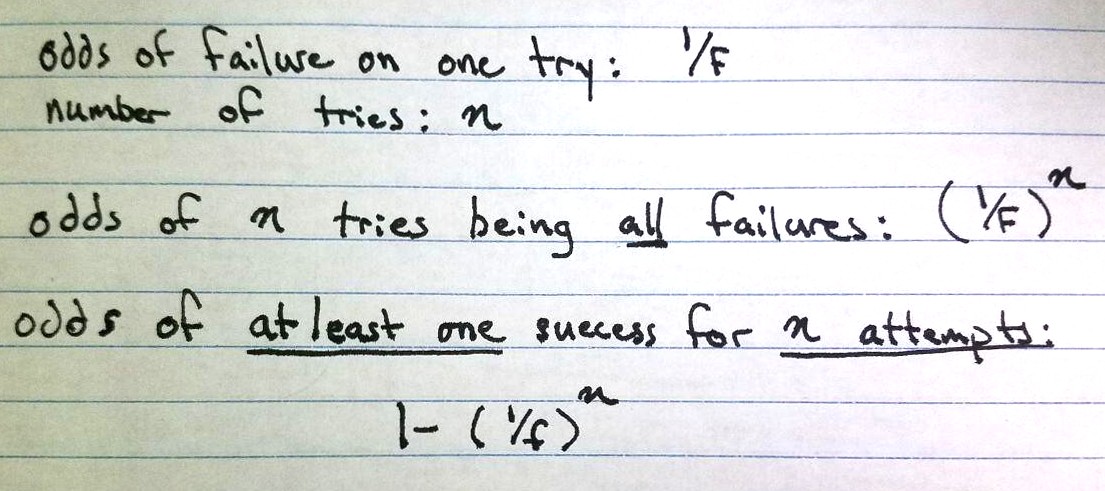 odds of failure on one try: 1/F
number of tries: n
odds of n tries being all failures: (1/F)^n
odds of at least one success for n attempts:
1- (1/f)^n